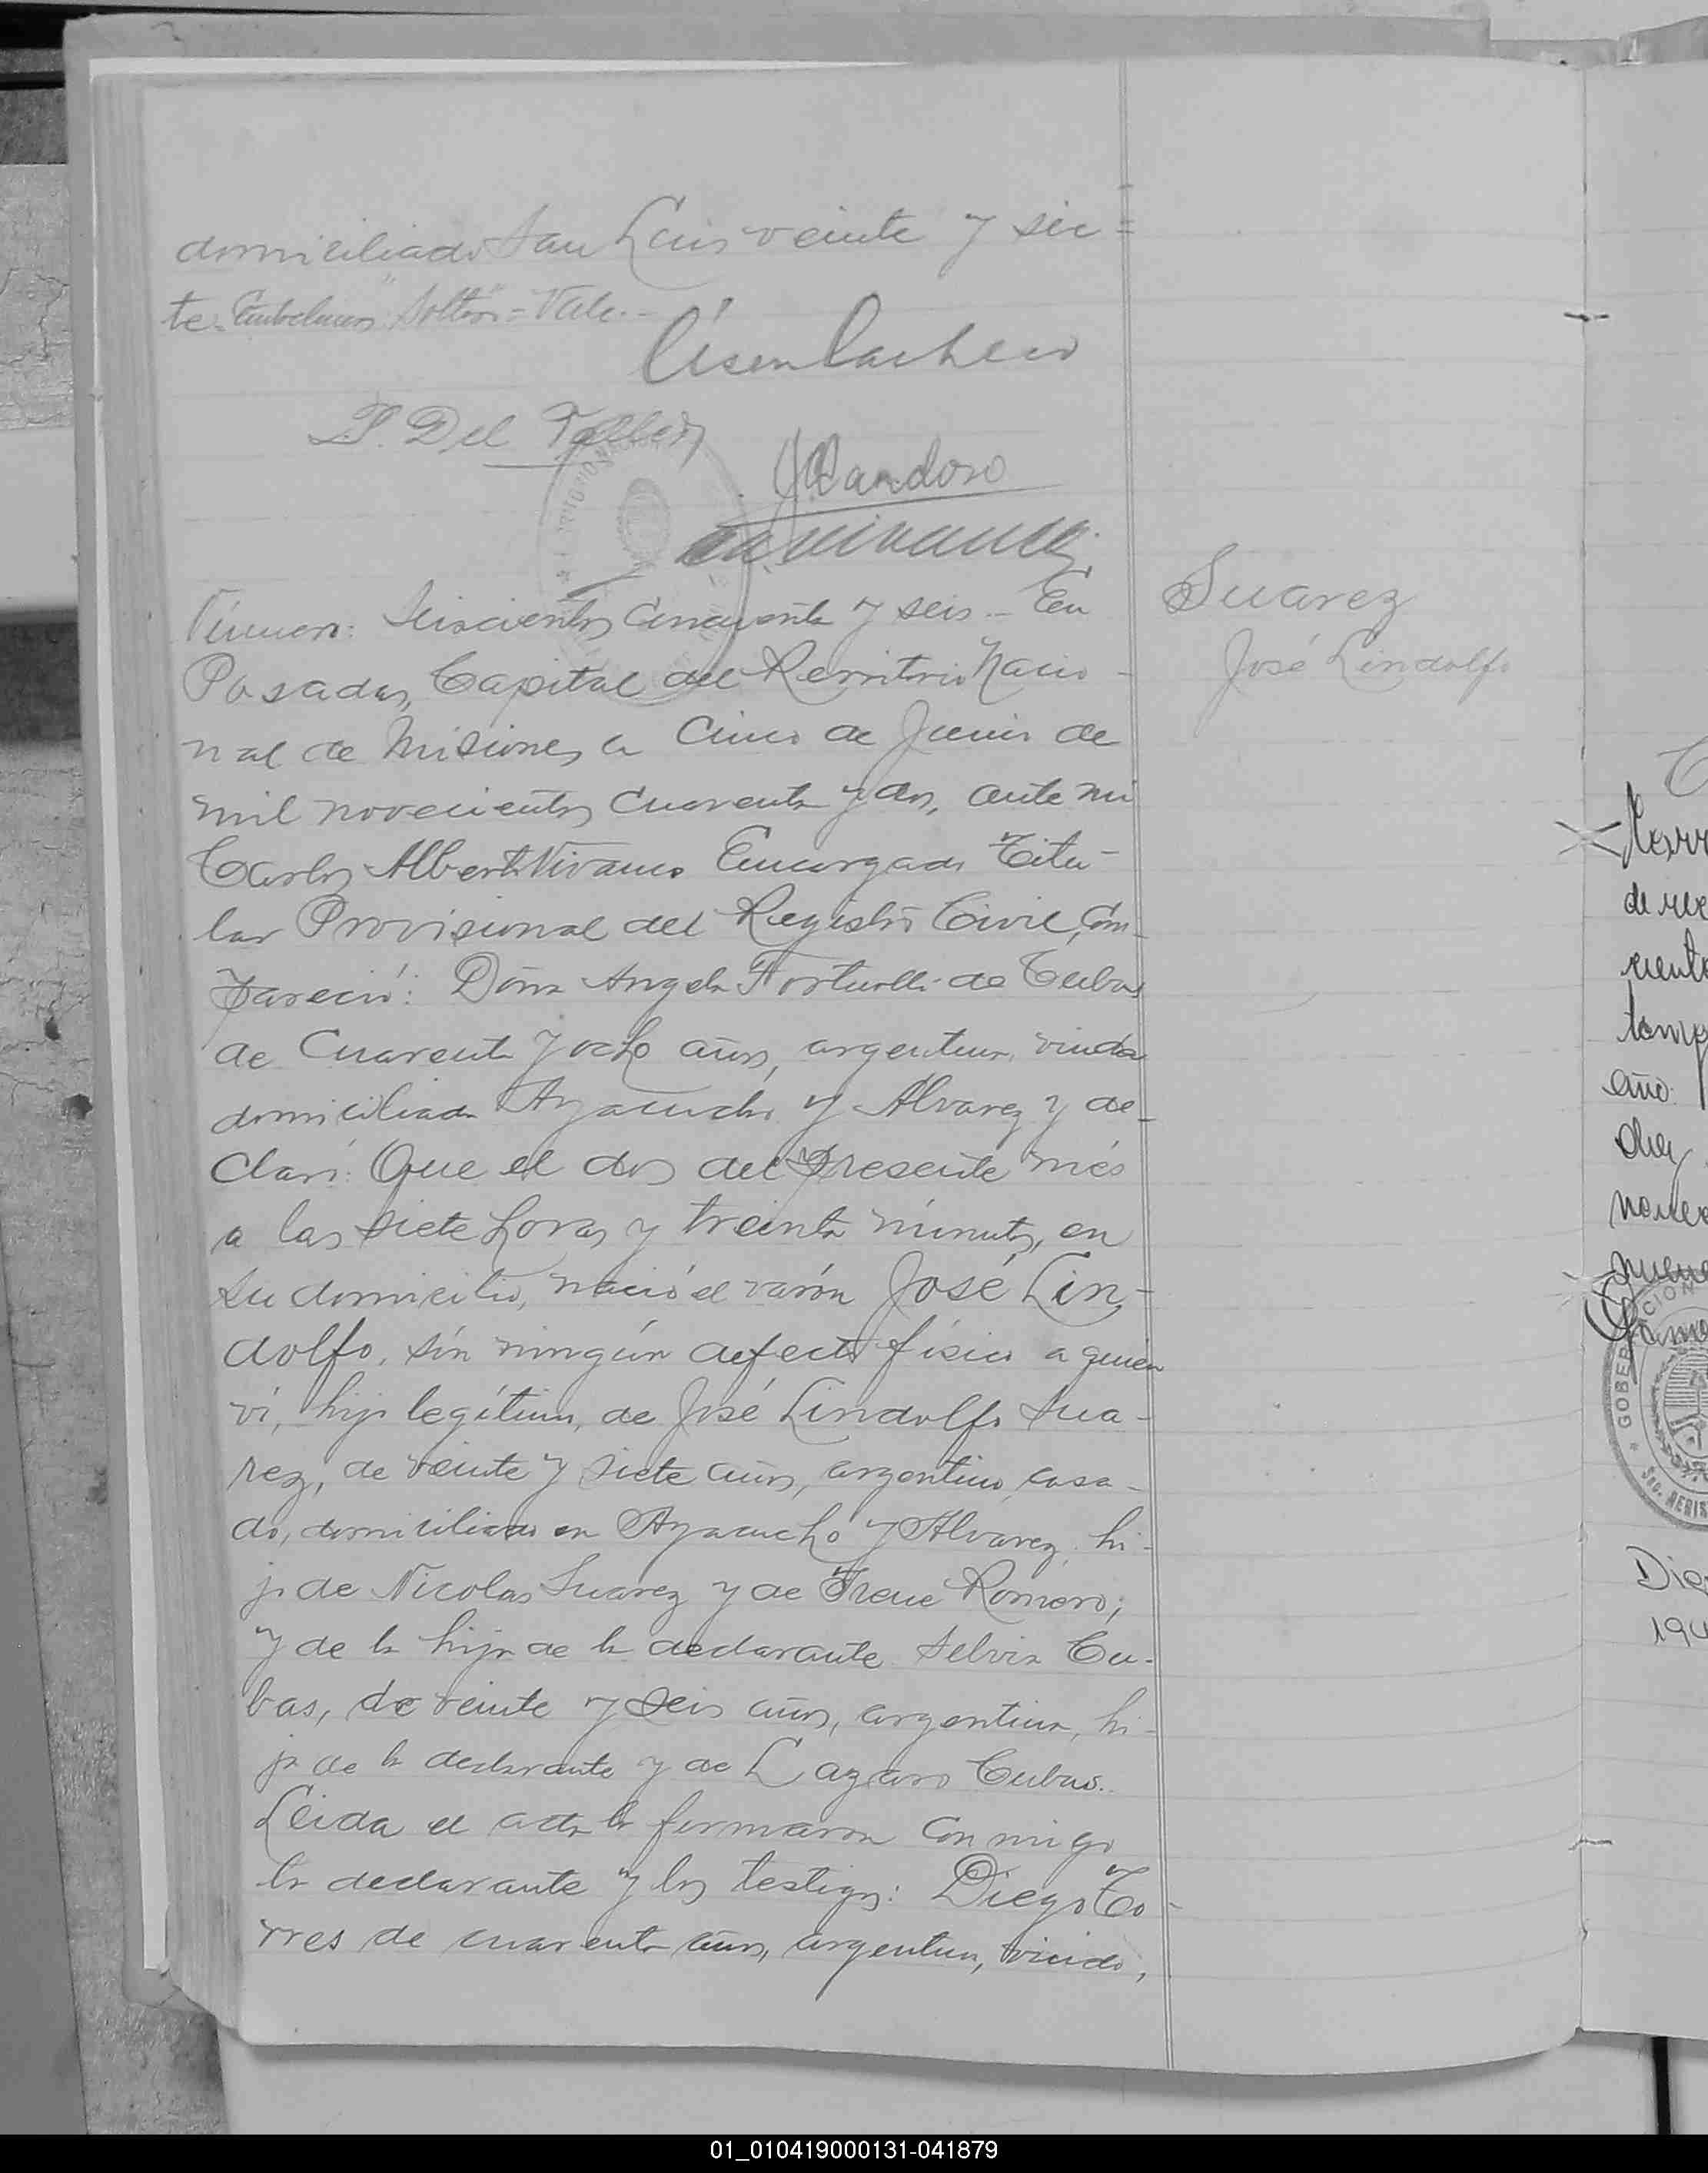 domiciliado San Luis veinte y sie=
te. Soltero = Vale.-
P. Del Valle
Número: Seiscientos cincuenta y seis.- En
Posadas, Capital del Territorio Nacio-
nal de Misiones a cinco de Junio de
mil novecientos cuarenta y dos, ante mi
Carlos Alberto Vivanco Encargado Titu-
lar Provisional del Registro Civil, Com-
pareció: Doña Angela de Cubas
de cuarenta y ocho años, argentina, viuda
domiciliada Ayacucho y Alvarez y de-
claró: Que el dos del presente més
a las siete horas y treinta minutos, en
su domicilio, nació el varón José Lin-
dolfo, sin ningún defecto físico a quien
ví, hijo legítimo, de José Lindolfo Sua-
rez, de veinte y siete años, argentino, casa-
do, domiciliado en Ayacucho y Alvarez, hi-
jo de Nicolas Suarez y de Irene Romero;
y de la hija de la declarante Selvia Cu-
bas, de veinte y seis años, argentina, hi-
ja de la declarante y de Lazaro Cubas.
Leida el acta la firmaron conmigo
la declarante y los testigos: Diego To-
rres de cuarenta años, argentino, viudo,
Suarez
José Lindolfo
de
año
GOBER
CION
REGIS
01_010419000131-041879